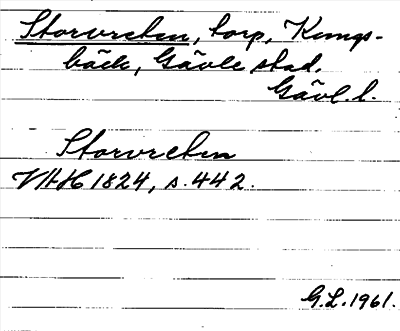 Storvreten, torp, Kungs-
bäck, Gävle stad.
Gävl. l.
Storvreten
VHH 1824, s. 442.
G.L. 1961.